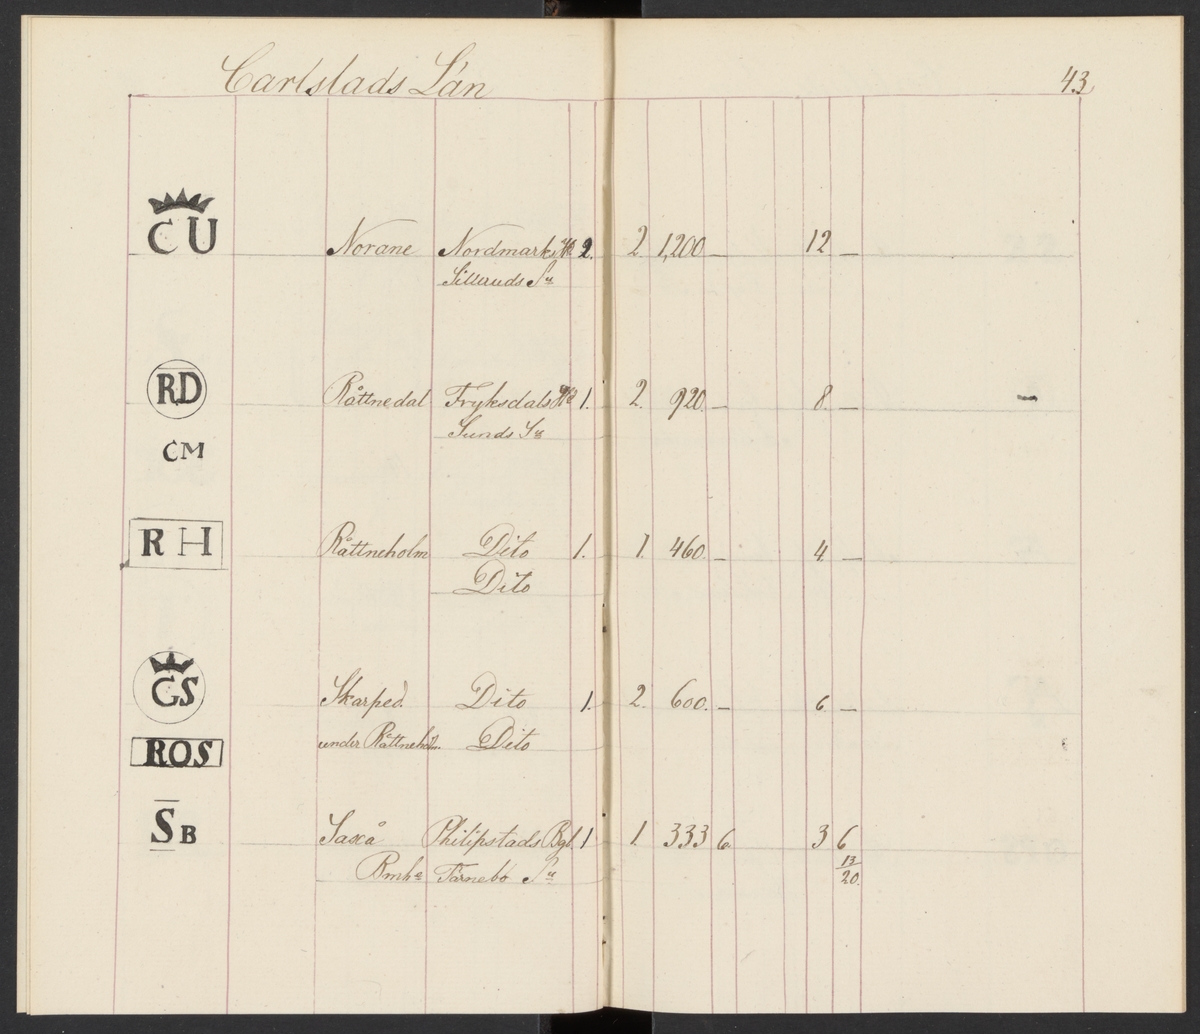 Carlstads Län 43
CU Norane Nordmarks Hd 2. 2. 1,200 — 12. —
Silleruds Sn
RD Råttnedal Fryksdals Hd 1. 2. 920. — 8. —
CM Sunds Sn
RH Råttneholm Dito 1. 1. 460. — 4. —
Dito
GS Skarped. Dito 1. 2. 600. — 6 —
ROS under Råttneholm. Dito
SB Saxå Philipstads Bgl. 1 1. 333 6. 3 6
Bmhe Färnebo Sn 13/20.